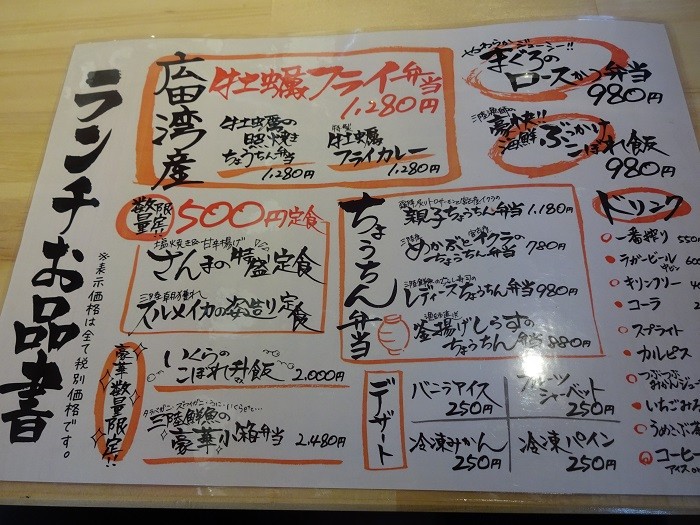 ランチお品書
※表示価格は全て税別価格です。
広田湾産
牡蠣フライ弁当
1,280円
牡蠣の
照焼き
ちょうちん弁当
1,280円
特製
牡蠣
フライカレー
1,280円
やわらかジューシー!!
まぐろの
ロースかつ弁当
980円
三陸漁師の
豪快!!
海鮮ぶっかけ
こぼれ飯
980円
数量限定!
500円定食
塩焼き or 甘辛揚げ
さんまの特盛定食
スルメイカの姿造り定食
豪華数量限定!!
いくらの
こぼれ升飯
2,000円
三陸鮮魚の
豪華小箱弁当
2,480円
ちょうちん弁当
親子ちょうちん弁当 1,180円
めかぶとイクラの
ちょうちん弁当 780円
レディースちょうちん弁当 980円
釜揚げしらすの
ちょうちん弁当 880円
デザート
バニラアイス
250円
フルーツ
シャーベット
250円
冷凍みかん
250円
冷凍パイン
250円
ドリンク
一番搾り
ラガービール
キリンフリー
コーラ
スプライト
カルピス
つぶつぶ
いちごみ
うめこぶ
コーヒー
アイス